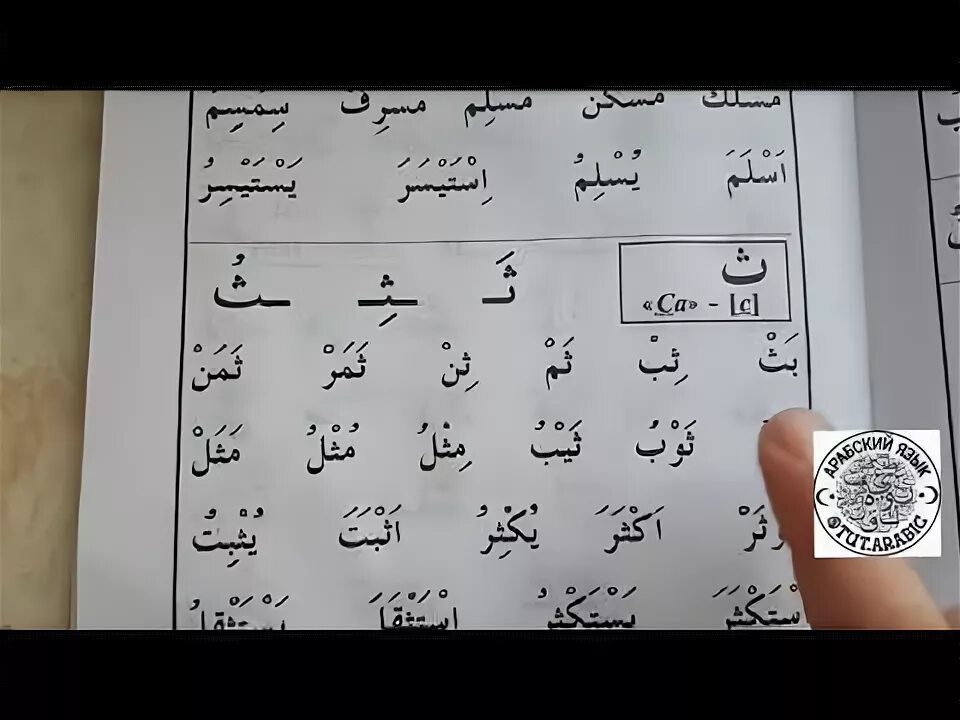 مسلك مسكن مسلم مسرف سِمْسِمْ
اَسْلَمَ يُسْلِمُ اِسْتَيْسَرَ يَسْتَيْسِرُ
ث ثَـ ـثِـ ـثُ
«Са» - [с]
بَثْ ثِبْ ثَمْ ثِنْ ثَمَرْ ثَمَنْ
ثَوْبُ ثَيْبُ مِثْلُ مُثْلُ مَثَلْ
اَكْثَرَ يُكْثِرُ اَثْبَتَ يُثْبِتُ
يَسْتَكْثِرُ
АРАБСКИЙ ЯЗЫК
@TUT.ARABIC